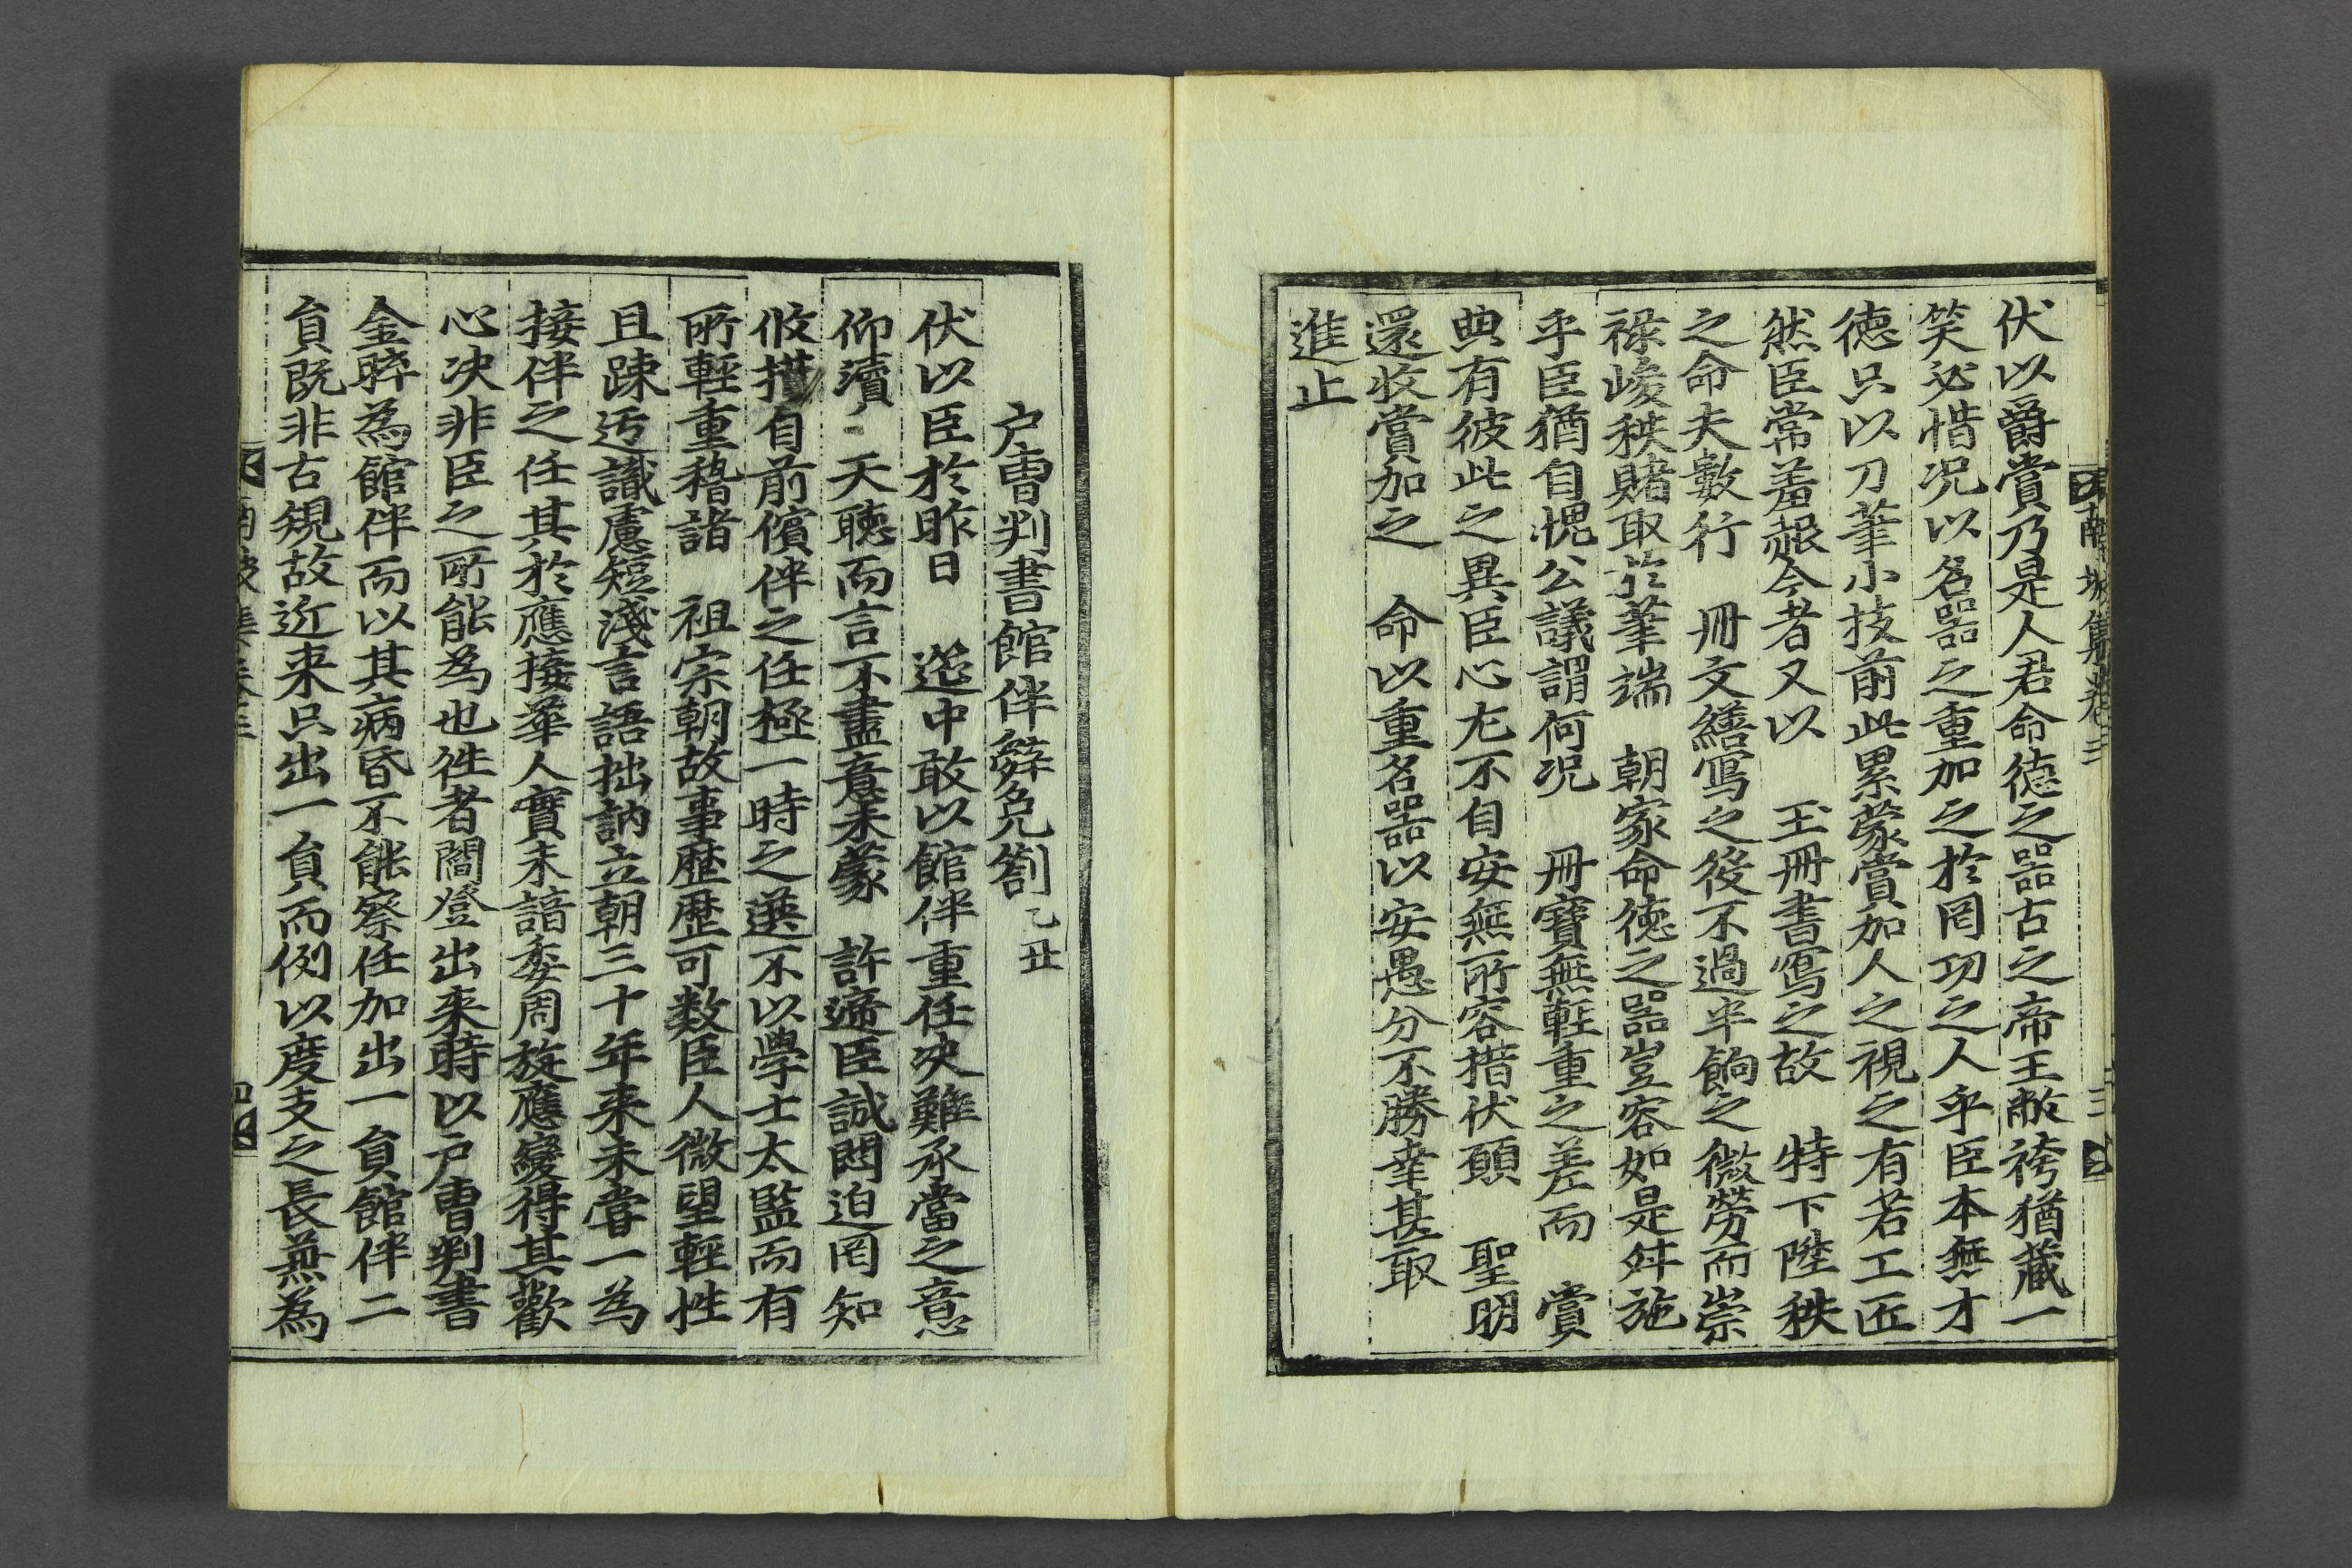 南坡集卷三
三
伏以爵賞乃是人君命德之器古之帝王敝袴猶藏一
笑必惜况以名器之重加之於罔功之人乎臣本無才
德只以刀筆小技前此累蒙賞加人之視之有若工匠
然臣常羞赧今者又以　玉冊書寫之故　特下陞秩
之命夫數行　冊文繕寫之後不過半餉之微勞而崇
祿峻秩賭取於筆端　朝家命德之器豈容如是舛施
乎臣猶自愧公議謂何况　冊寶無輕重之差而　賞
典有彼此之異臣心尤不自安無所容措伏願　聖明
還收賞加之　命以重名器以安愚分不勝幸甚取
進止
戶曹判書館伴辭免劄乙丑
伏以臣於昨日　筵中敢以館伴重任决難承當之意
仰瀆　天聽而言不盡意未蒙　許遆臣誠悶迫罔知
攸措自前儐伴之任極一時之選不以學士太監而有
所輕重稽諸　祖宗朝故事歷歷可数臣人微望輕性
且踈迃識慮短淺言語拙訥立朝三十年來未嘗一為
接伴之任其於應接華人實未諳委周旋應變得其歡
心决非臣之所能為也徃者閻登出來時以戶曹判書
金晬為館伴而以其病昏不能察任加出一負館伴二
負既非古規故近来只出一負而例以度支之長兼為
南坡集卷三
四